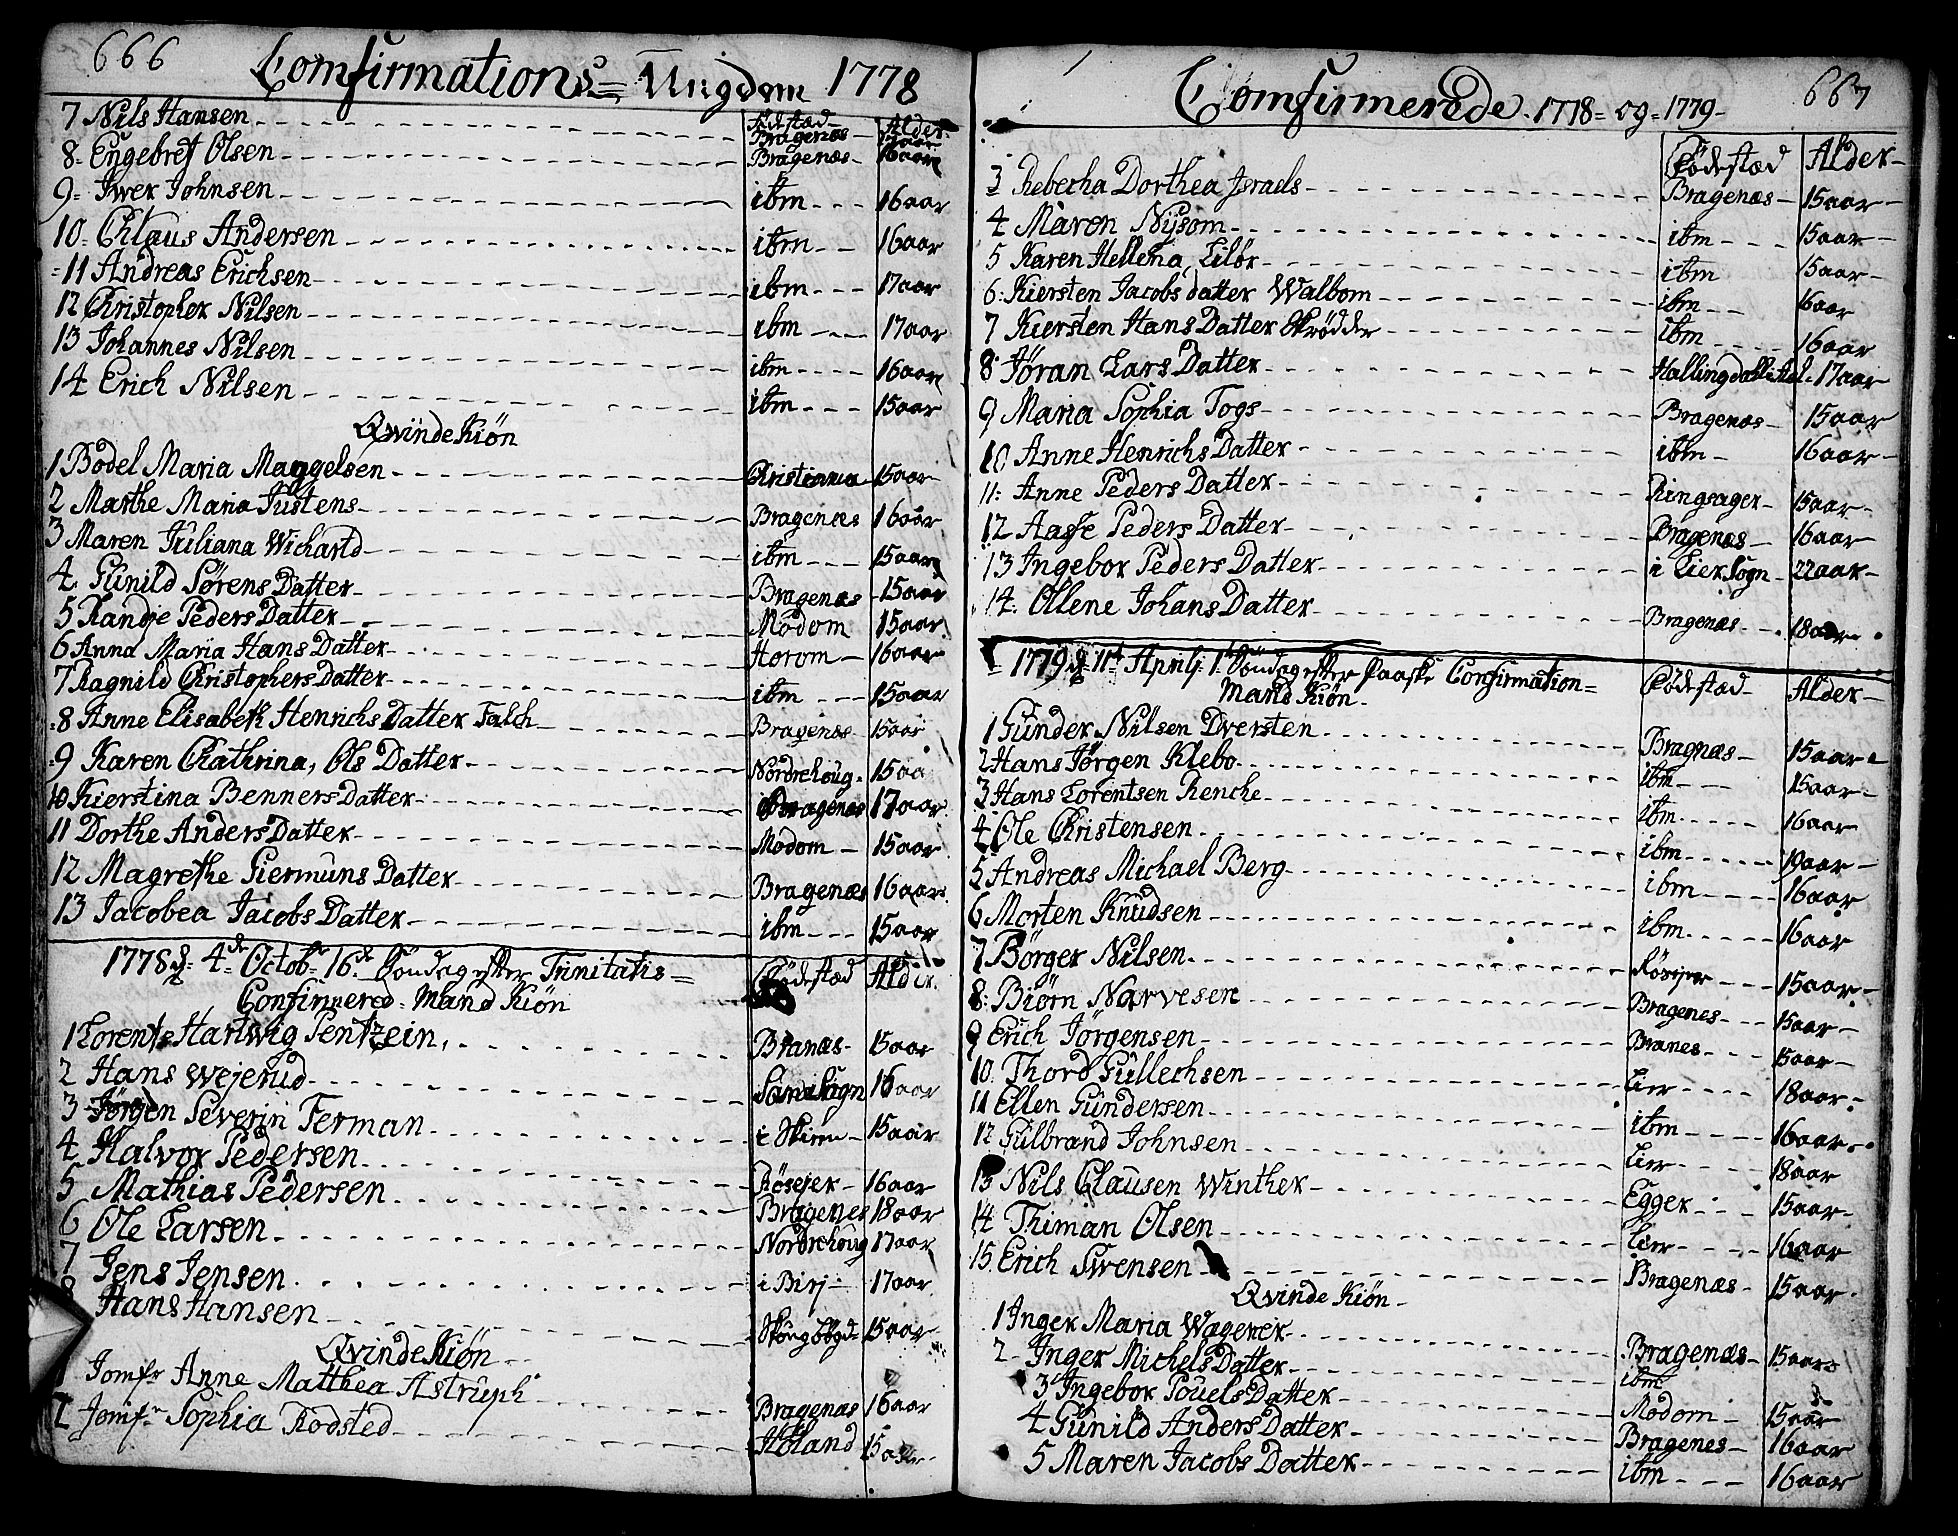 666 Comfirmations= Ungdom 1778
Födestæd Alder
7 Nils Hansen Bragenæs
8 Engebret Olsen Bragenæs 16aar
9 Iwer Johnsen ibm 16aar
10 Claus Andersen ibm 16aar
11 Andreas Erichsen ibm 17aar
12 Christopher Nilsen ibm 17aar
13 Johannes Nilsen ibm 16aar
14 Erich Nilsen ibm 15aar
Qvinde Kiön
1 Bodel Maria Maggelsen Christiania 15aar
2 Marthe Maria Justens Bragenæs 16aar
3 Maren Juliana Wichard ibm 15aar
4 Gunild Sörens Datter Bragenæs 15aar
5 Randje Peders Datter Modom 15aar
6 Anna Maria Hans Datter Horom 16aar
7 Ragnild Christophers Datter ibm 15aar
8 Anne Elisabeth Henrichs Datter Falch Bragenæs 15aar
9 Karen Chathrina, Ols Datter Nordrehoug 15aa
10 Kierstina Benners Datter Bragenes 17aar
11 Dorthe Anders Datter Modom 15aar
12 Magrethe Giermuns Datter Bragenæs 16aar
13 Jacobea Jacobs Datter ibm 15aar
1778 d. 4de Octob. 16de Söndag efter Trinitatis=
Födestæd Alder.
Confirmered= Mand Kiön
1 Lorents Hartwig Sentzein, Branæs 15aar
2 Hans Wejerud Sogn 16aar
3 Jörgen Severin Ferman i Skien 15aar
4 Halvor Pedersen Rösejer 16aar
5 Mathias Pedersen Bragenes 18aar
6 Ole Larsen Nordrehoug 17aar
7 Jens Jensen i Birj 17aar
8 Hans Hansen 15aar
Qvinde Kiön
1 Jomfr Anne Matthea Astruph Bragenæs 16aar
2 Jomfr Sophia Rodsted Höland 15aar
Comfirmerede 1778= og= 1779 667
Födestæd Alder
3 Rebecha Dorthea Israels Bragenæs 15aar
4 Maren Nysom ibm 15aar
5 Karen Hellena Lilör ibm 15aar
6 Kiersten Jacobs datter Walbom ibm 16aar
7 Kiersten Hans Datter Skrödder ibm 16aar
8 Jöran Lars Datter Hallingdal 17aar
9 Maria Sophia Togs Bragenæs 15aar
10 Anne Henrichs Datter ibm 16aar
11 Anne Peders Datter Ringsager 15aar
12 Aasse Peders Datter Bragenæs 16aar
13 Ingebor Peders Datter i Lier Sogn 22aar
14 Ollene Johans Datter Bragenæs 18aar
1779 d. 11t Aprilj 1te Söndag efter Paaske Confirmation=
Födestæd Alder
Mand Kiön
1 Gunder Nilsen Dversten Bragnæs 15aar
2 Hans Jörgen Klebo ibm 15aar
3 Hans Lorentsen Renche ibm 16aar
4 Ole Christensen ibm 19aar
5 Andreas Michael Berg ibm 16aar
6 Morten Knudsen ibm 16aar
7 Börger Nilsen 15aar
8 Biörn Narvesen Bragenes 15aar
9 Erich Jörgensen Branes 15aar
10 Thord Gullechsen Lier 18aar
11 Ellen Gundersen ibm 16aar
12 Gulbrand Johnsen Lier 18aar
13 Nils Clausen Winther Egger 15aar
14 Thiman Olsen Lier 16aar
15 Erich Swensen Bragenæs 15aar
Qvinde Kiön
1 Inger Maria Wagener Bragenæs 15aar
2 Inger Michels Datter ibm
3 Ingebor Pouels Datter Modom 15aar
4 Gunild Anders Datter Bragenes 16aar
5 Maren Jacobs Datter ibm 16aar